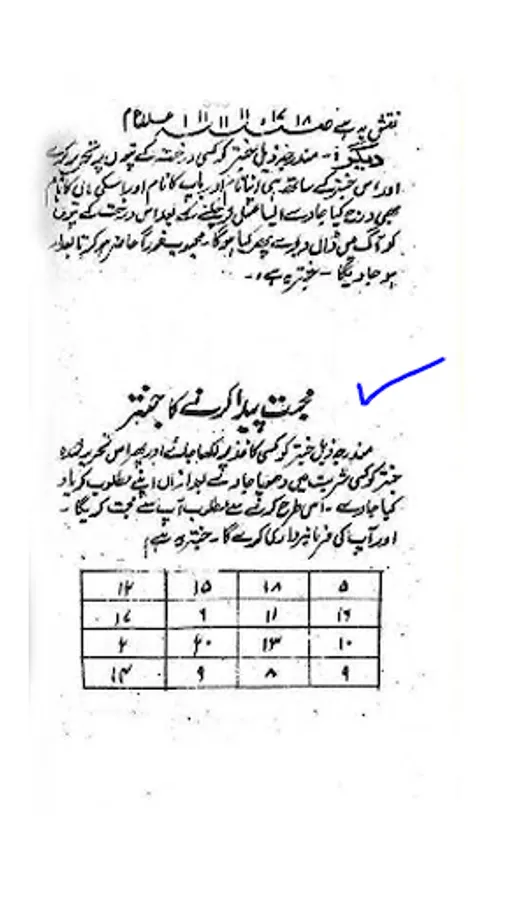 نقش یہ ہے
دیگر :- مندرجہ ذیل جنتر کو کسی درخت کے پتوں پر تحریر کرے
اور اس جنتر کے ساتھ ہی اپنا نام اور باپ کا نام اور اسکی ماں کا نام
بھی درج کیا جاوے ایسا عمل کے بعد اس درخت کے پتوں
کو آگ میں ڈال دیوے پھر کیا ہوگا محبوب فوراً حاضر ہو کر تابعدار
ہو جاویگا - جنتر یہ ہے :-
محبت پیدا کرنے کا جنتر
مندرجہ ذیل جنتر کو کسی کاغذ پر لکھا جائے اور پھر اس تحریر شدہ
جنتر کو کسی شربت میں دھویا جاوے بعد ازاں اپنے مطلوب کو یاد
کیا جاوے - اسی طرح کرنے سے مطلوب آپ سے محبت کریگا -
اور آپ کی فرمانبرداری کرے گا - جنتر یہ ہے
۱۲ ۱۵ ۱۸ ۵
۱۷ ۶ ۱۱ ۱۶
۲ ۲۰ ۱۳ ۱۰
۱۴ ۹ ۸ ۹